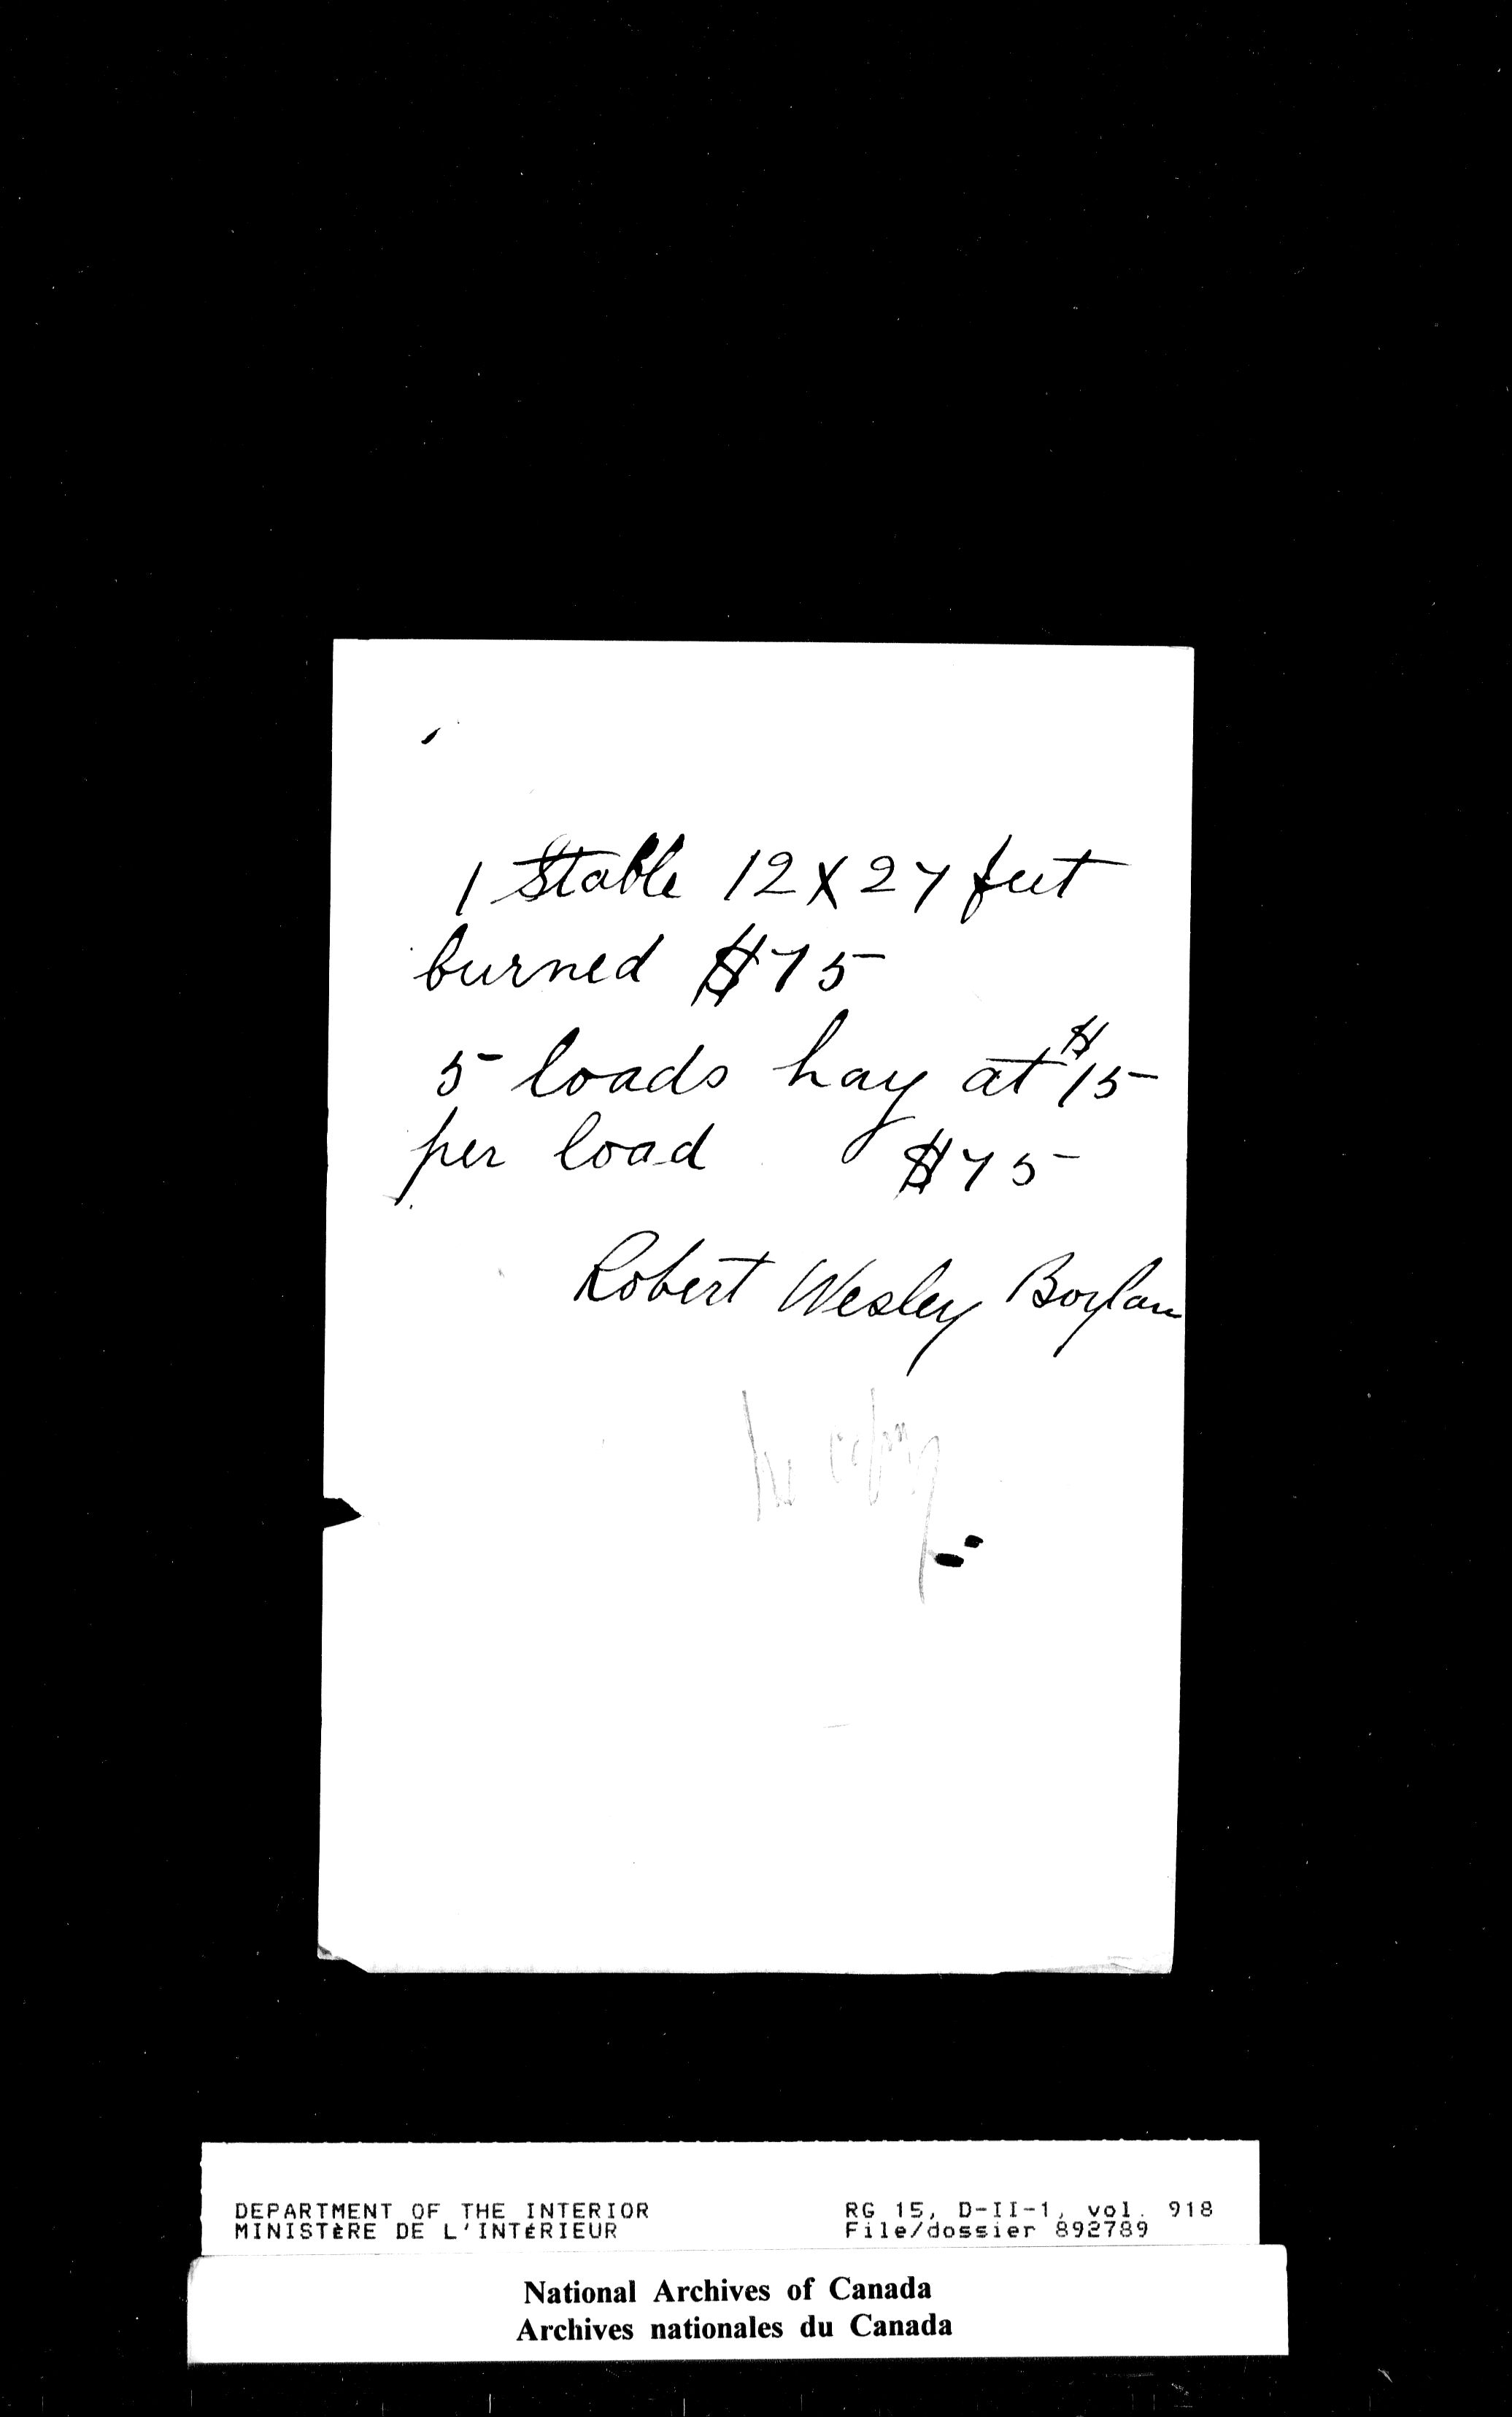 1 Stable 12 X 27 feet
burned $75
5 loads hay at $15
per load $75
Robert Wesley Boylan
DEPARTMENT OF THE INTERIOR
MINISTÈRE DE L'INTÉRIEUR
RG 15, D-II-1, vol. 918
File/dossier 892789
National Archives of Canada
Archives nationales du Canada